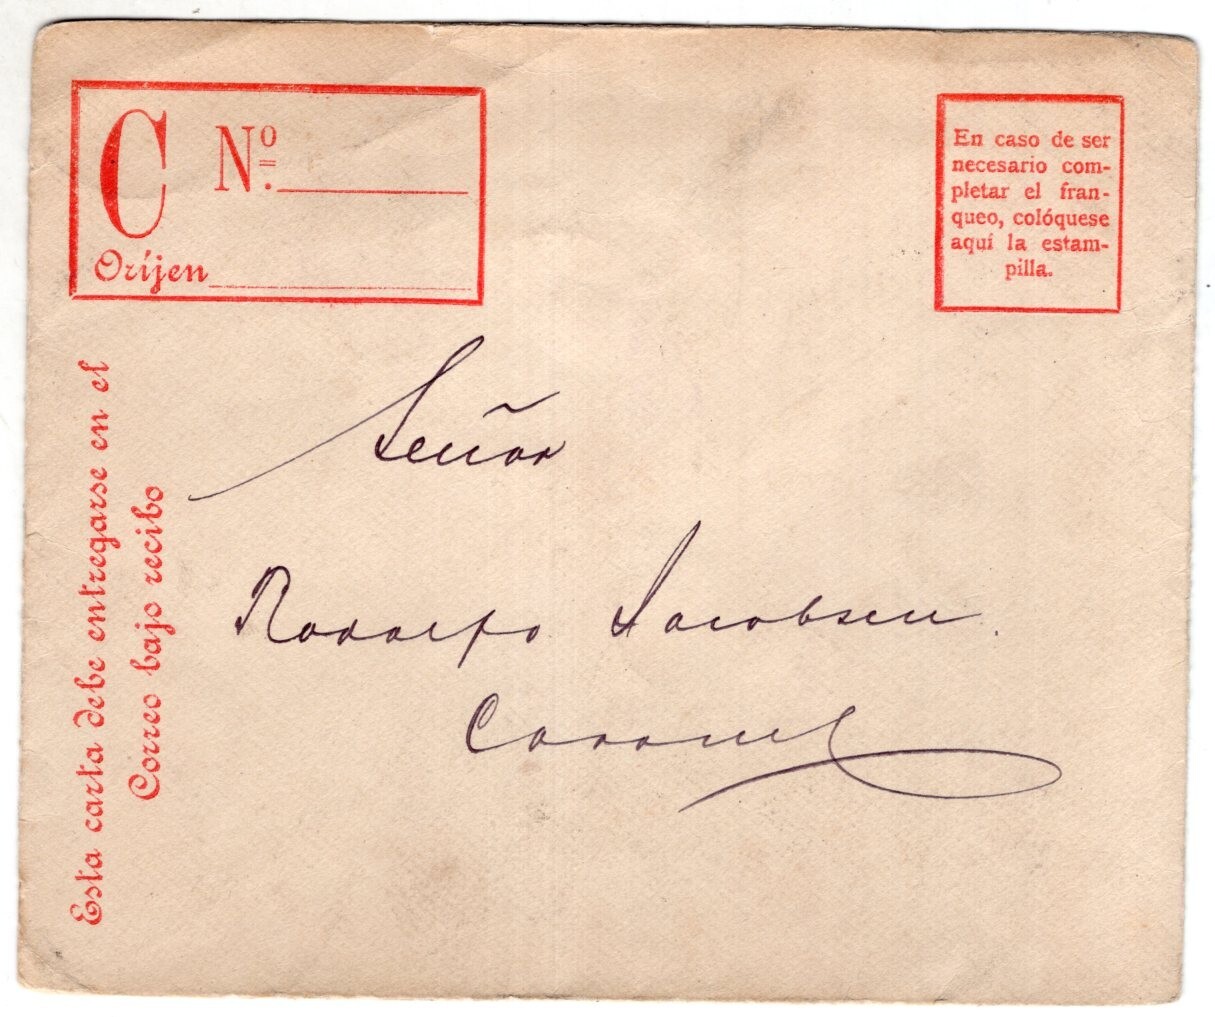 C Nº
Oríjen
En caso de ser
necesario com-
pletar el fran-
queo, colóquese
aquí la estam-
pilla.
Esta carta debe entregarse en el
Correo bajo recibo
Señor
Rodolfo Jacobsen.
Coronel